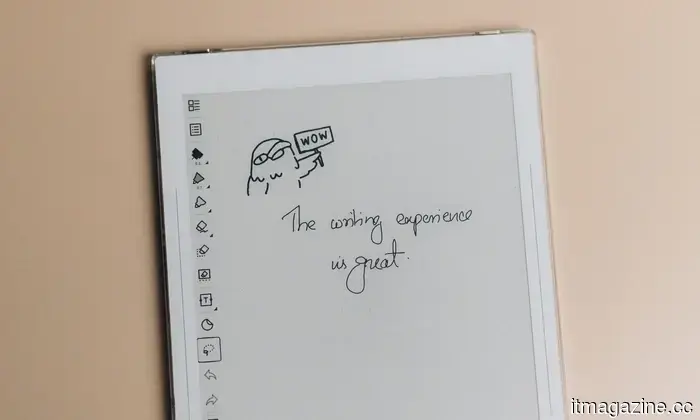 WOW
The writing experience
is great.
T
itmagazine.cc